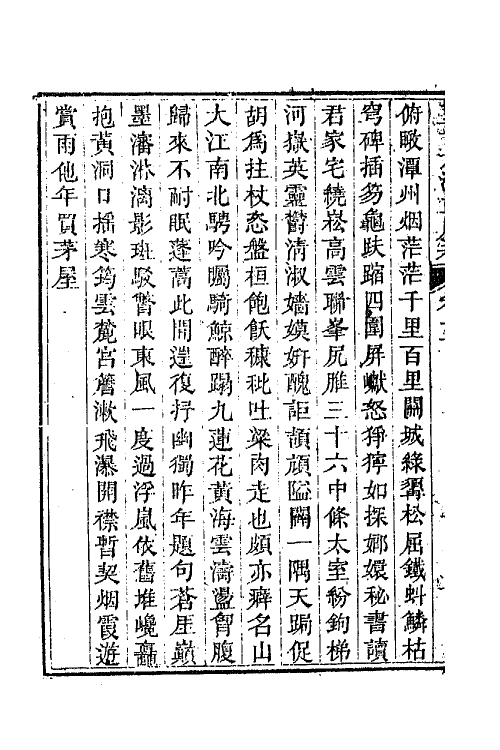 俯瞰潭州烟茫茫千里百里關城綠翳松屈鐵虯鱗枯
穹碑插笏龜趺蹜四圍屏巘怒猙獰如探嫏嬛秘書讀
君家宅繞崧高雲聯峯尻脽三十六中條太室紛鉤梯
河嶽英靈鬱清淑嬙嫫姸醜詎頡頏隘闚一隅天跼促
胡爲拄杖恣盤桓飽飫糠秕吐粱肉走也頗亦癖名山
大江南北騁吟矚騎鯨醉蹋九蓮花黃海雲濤盪胷腹
歸來不耐眠蓬蒿此間遑復抒幽獨昨年題句蒼厓巔
墨瀋淋漓影斑駁瞥眼東風一度過浮嵐依舊堆巉矗
抱黃洞口搖寒筠雲麓宮簷漱飛瀑開襟暫契烟霞遊
賞雨他年買茅屋